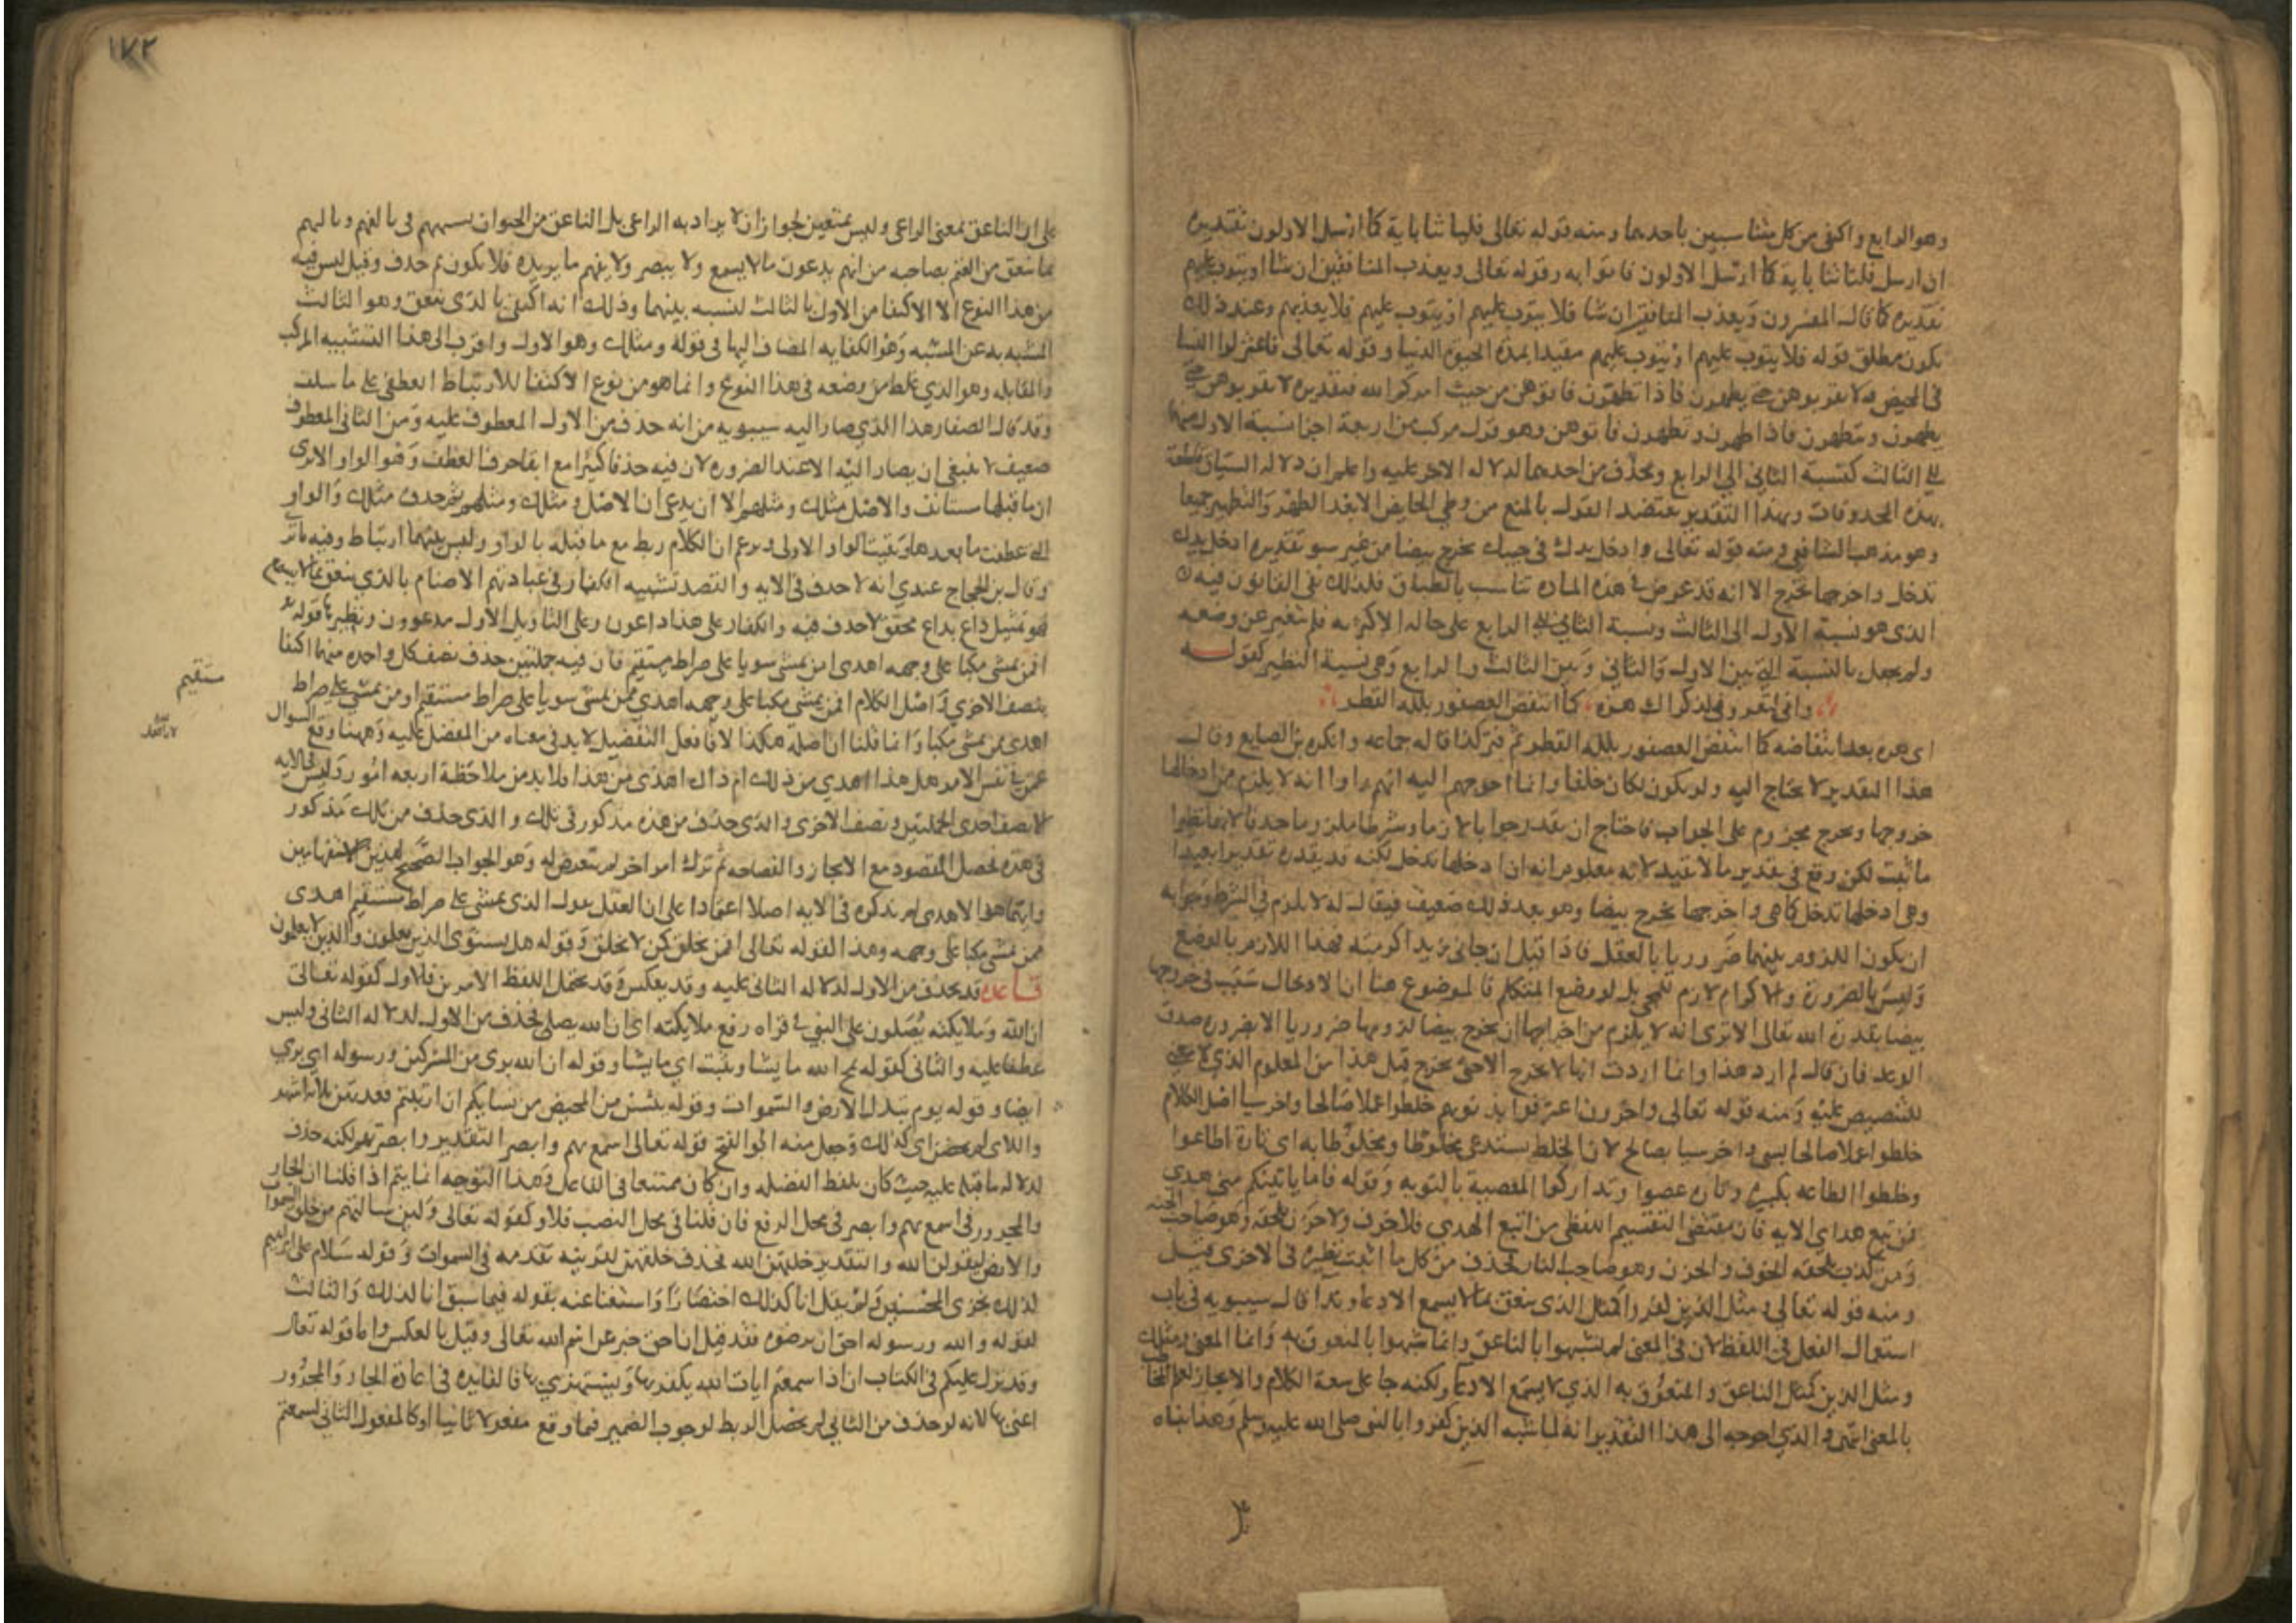 وهو الرابع واكتفى من كل متناسبين باحدهما ومنه قوله تعالى فلياتنا باية كما ارسل الاولون تقديره
ان ارسل فلياتنا باية كما ارسل الاولون فاتوا به وقوله تعالى ويعذب المنافقين ان شا او يتوب عليهم
تقديره كما قاله المفسرون ويعذب المنافقين ان شا فلا يتوب عليهم او يتوب عليهم فلا يعذبهم وعند ذلك
يكون مطلق قوله فلا يتوب عليهم او يتوب عليهم مقيدا بمدة الحيوة الدنيا وقوله تعالى فاعتزلوا النسا
في المحيض ولا تقربوهن حتى يطهرن فاذا تطهرن فاتوهن من حيث امركم الله فتقديره لا تقربوهن حتى
يطهرن وتطهرن فاذا طهرن وتطهرن فاتوهن وهو قول مركب من اربعة اجزا نسبة الاول منها
الى الثالث كنسبة الثاني الى الرابع ويحذف من احدهما لدلالة الاخر عليه واعلم ان دلالة السياق قاطعة
بهذه المحذوفات وبهذا التقدير يعتضد القول بالمنع من وطى الحايض الا بعد الطهر والتطهير جميعا
وهو مذهب الشافعي ومنه قوله تعالى وادخل يدك في جيبك تخرج بيضا من غير سو تقديره ادخل يدك
تدخل واخرجها تخرج الا انه قد عرض في هذه المادة تناسب بالطباق فلذلك بقى القانون فيه
الذي هو نسبة الاول الى الثالث ونسبة الثاني الى الرابع على حاله الاكثرية فلم يتغير عن وضعه
ولم يجعل بالنسبة التي بين الاول والثاني وبين الثالث والرابع وهي نسبة النظير كقوله
واني لتعروني لذكراك هزة كما انتفض العصفور بلله القطر
اي هزة بعد انتفاضه كما انتفض العصفور بلله القطر ثم كذا قاله جماعه وانكره بن الصايغ وقال
هذا التقدير لا يحتاج اليه ولو يكون لكان خلفا وانما احوجهم اليه انهم راوا انه لا يلزم من ادخالها
خروجها وتخرج مجزوم على الجواب فاحتاج ان يقدر جوابا لازما وشرطا ملزوما حذفا لانهما نظيرا
ما ثبت لكن وقع في تقدير ما لا يفيد لانه معلوم انه ان ادخلها تدخل لكنه قد يقدر تقديرا بعيدا
وهي ادخلها تدخل كما هي واخرجها تخرج بيضا وهو بعد ذلك ضعيف فيقال له لا يلزم في الشرط وجوابه
ان يكون اللزوم بينهما ضروريا بالعقل فاذا قيل ان جاني زيد اكرمته فهذا اللازم بالوضع
وليس بالضرورة والاكرام لازم للمجي بل لوضع المتكلم فالموضوع هنا ان الادخال سبب في خروجها
بيضا بقدرة الله تعالى الا ترى انه لا يلزم من اخراجها ان تخرج بيضا لزوما ضروريا الا بضرورة صدق
الوعد فان قال لم ارد هذا وانما اردت انها لا تخرج الا حتى تخرج قيل هذا من المعلوم الذي لا معنى
للتنصيص عليه ومنه قوله تعالى واخرون اعترفوا بذنوبهم خلطوا عملا صالحا واخر سيا اصل الكلام
خلطوا عملا صالحا بسي واخر سيا بصالح لان الخلط يستدعي مخلوطا ومخلوطا به اي تارة اطاعوا
وخلطوا الطاعة بكبيرة وتارة عصوا وتداركوا المعصية بالتوبه وقوله فاما ياتينكم مني هدى
فمن تبع هداي الاية فان مقتضى التقسيم اللفظي من اتبع الهدي فلا خوف ولا حزن يلحقه وهو صاحب الجنه
ومن كذب يلحقه الخوف والحزن وهو صاحب النار فحذف من كل ما اثبت نظيره في الاخرى قيل
ومنه قوله تعالى ومثل الذين كفروا كمثل الذي ينعق بما لا يسمع الا دعا وندا قال سيبويه في باب
استعمال الفعل في اللفظ لا في المعنى لم يشبهوا بالناعق وانما شبهوا بالمنعوق به وانما المعنى ومثلك
ومثل الذين كمثل الناعق والمنعوق به الذي لا يسمع الا دعا ولكنه جا على سعة الكلام والايجاز لعلم المخاطب
بالمعنى انتهى والذي احوجه الى هذا التقدير انه لما شبه الذين كفروا بالنبي صلى الله عليه وسلم وهذا بناه
١٧٢
على ان الناعق بمعنى الراعى وليس بمتعين لجواز ان لا يراد به الراعى بل الناعق من الحيوان شبههم في تالفهم وتالبهم
بما ينعق من الغنم بصاحبه من انهم يدعون ما لا يسمع ولا يبصر ولا يفهم ما يريده فلا يكون ثم حذف وقيل ليس فيه
من هذا النوع الا الاكتفا من الاول بالثالث لنسبه بينهما وذلك انه اكتفى بالذي ينعق وهو الثالث
المشبه به عن المشبه وهو الكناية المضاف اليها في قوله ومثلك وهو الاول واقرب الى هذا التشبيه المركب
والمقابله وهو الذي غلط من وضعه في هذا النوع وانما هو من نوع الاكتفا للارتباط العطفي على ما سلف
وقد قال الصفار هذا الذي صار اليه سيبويه من انه حذف من الاول المعطوف عليه ومن الثاني المعطوف
ضعيف لا ينبغي ان يصار اليه الا عند الضرورة لان فيه حذفا كثيرا مع ابقا حرف العطف وهو الواو الا ترى
ان ما قبلها مستانف والاصل مثلك ومثلهم الا ان يدعى ان الاصل ومثلك ومثلهم ثم حذف مثلك والواو
التي عطفت ما بعدها وبقيت الواو الاولى ويزعم ان الكلام ربط مع ما قبله بالواو وليس بينهما ارتباط وفيه ما ترى
وقال بن الحجاج عندي انه لا حذف في الايه والقصد تشبيه الكفار في عبادتهم الاصنام بالذي ينعق بما لا يسمع
فهو تمثيل داع بداع محقق لا حذف فيه والكفار على هذا داعون وعلى التاويل الاول مدعوون ونظيرها قوله
افمن يمشي مكبا على وجهه اهدى امن يمشي سويا على صراط مستقيم فان فيه جملتين حذف نصف كل واحدة منهما اكتفا
بنصف الاخري واصل الكلام افمن يمشي مكبا على وجهه اهدي ممن يمشي سويا على صراط مستقيم او من يمشي على صراط
مستقيم
اهدى ممن يمشي مكبا وانما قلنا ان اصله هكذا لان افعل التفضيل لا بد في معناه من المفضل عليه وههنا وقع السوال
عن في نفس الامر هل هذا اهدي من ذلك ام ذاك اهدى من هذا فلا بد من ملاحظة اربعه امور وليس في الايه
الا نصف احدى الجملتين ونصف الاخرى والذي حذف من هذه مذكور في تلك والذي حذف من تلك مذكور
في هذه فحصل المقصود مع الايجاز والفصاحه ثم ترك امر اخر لم يتعرض له وهو الجواب الصحيح لهذين الاستفهامين
وايهما هو الاهدى لم يذكره في الايه اصلا اعتمادا على ان العقل يقول الذي يمشي على صراط مستقيم اهدى
ممن يمشي مكبا على وجهه وهذا كقوله تعالى افمن يخلق كمن لا يخلق وقوله هل يستوى الذين يعلمون والذين لا يعلمون
قاعدة قد يحذف من الاول لدلالة الثاني عليه وقد يعكس وقد يحتمل اللفظ الامرين فالاول كقوله تعالى
ان الله وملايكته يصلون على النبي في قراه رفع ملايكته اى ان الله يصلى فحذف من الاول لدلالة الثاني وليس
عطفا عليه والثاني كقوله يمح الله ما يشا ويثبت اي ما يشا وقوله ان الله برى من المشركين ورسوله اي بري
ايضا وقوله يوم تبدل الارض والسموات وقوله يئسن من المحيض من نسايكم ان ارتبتم فعدتهن ثلاثة اشهر
واللاى لم يحضن اى كذلك وجعل منه ابو الفتح قوله تعالى اسمع بهم وابصر التقدير وابصر بهم لكنه حذف
لدلالة ما قبله عليه حيث كان بلفظ الفضله وان كان ممتنعا في الفاعل وهذا التوجيه انما يتم اذا قلنا ان الجار
والمجرور في اسمع بهم وابصر في محل الرفع فان قلنا في محل النصب فلا وكقوله تعالى ولين سالتهم من خلق السموات
والارض ليقولن الله والتقدير خلقهن الله فحذف خلقهن لقرينه تقدمه في السموات وقوله سلام على ابراهيم
كذلك نجزى المحسنين ولم يقل انا كذلك اختصارا واستغنا عنه بقوله فيما سبق انا كذلك والثالث
كقوله والله ورسوله احق ان يرضوه فقد قيل ان احق خبر عن اسم الله تعالى وقيل بالعكس واما قوله تعالى
وقد نزل عليكم في الكتاب ان اذا سمعتم ايات الله يكفر بها ويستهزي بها فالفايده في اعادة الجار والمجرور
اعنى بها لانه لو حذف من الثاني لم يحصل الربط لوجوب الضمير فيما وقع مفعولا ثانيا او كالمفعول الثاني لسمعتم